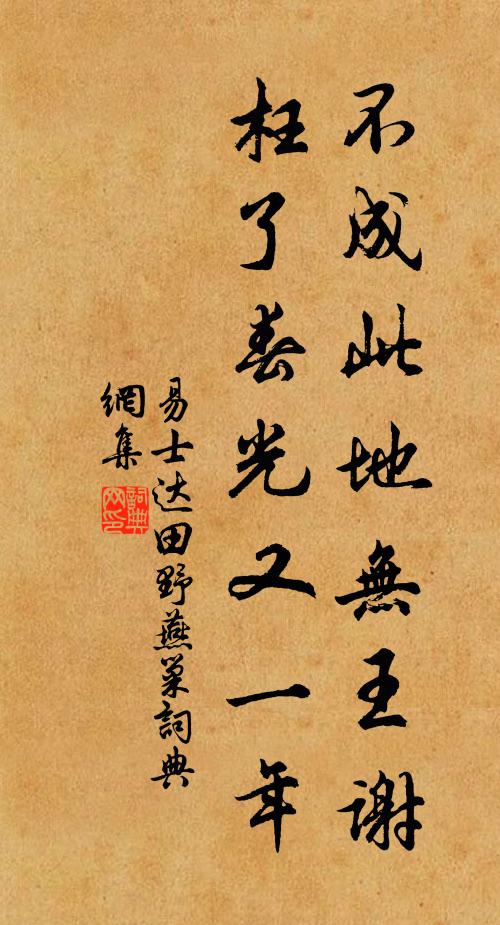 不成此地無王謝
枉了春光又一年
易士达田野燕巢詞典
網集
詞典
网印